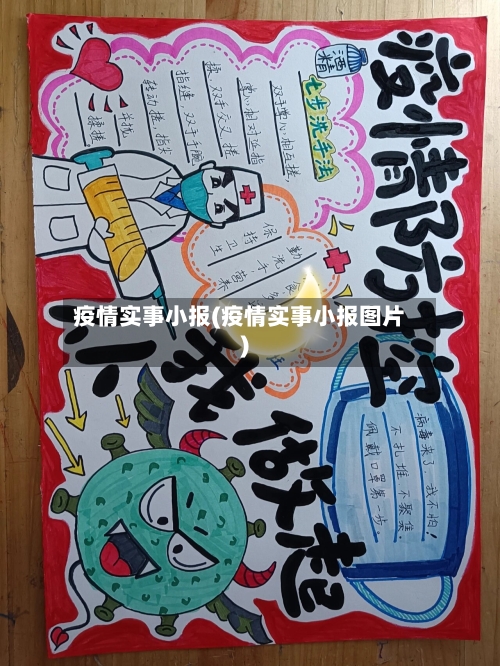 疫情防控
从我做起
酒精
七步洗手法
双手掌心相互搓,
搓 双手交叉 搓
指缝 双手手腕
转动搓 指尖
揉搓
保持卫生
勤洗手
疫情实事小报(疫情实事小报图片
)
病毒来了,我不怕!
不扎堆 不聚集.
佩戴口罩第一步